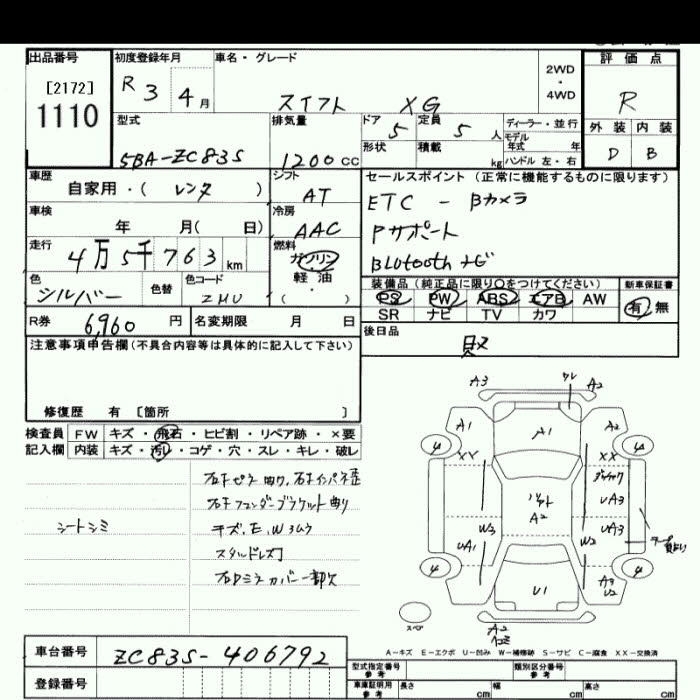 出品番号
[2172]
1110
初度登録年月
R 3 4月
車名・グレード
スイフト XG
2WD
・
4WD
評価点
R
外装 内装
D B
型式
5BA-ZC83S
排気量
1200 CC
ドア 5
定員 5 人
形状
積載 kg
ディーラー・並行
モデル
年式 年
ハンドル 左・右
車歴
自家用・( レンタ )
シフト
AT
車検
年 月( 日)
冷房
AAC
走行
4万5千763 km
燃料
ガソリン
・
軽油
( )
色
シルバー
色替
色コード
ZMU
R券 6,960 円
名変期限 月 日
セールスポイント (正常に機能するものに限ります)
ETC - Bカメラ
Pサポート
Blutoothナビ
装備品 (純正品に限り○をつけてください)
PS PW ABS エアB AW
SR ナビ TV カワ
新車保証書
有 無
後日品
取
注意事項申告欄(不具合内容等は具体的に記入して下さい)
修復歴 有 [箇所 ]
検査員 FW キズ・飛石・ヒビ割・リペア跡・×要
記入欄 内装 キズ・汚レ・コゲ・穴・スレ・キレ・破レ
シートシミ
右Fピラ曲り、右Fインパネ歪
右Fフェンダーブラケット曲り
キズ、E、Wコウ
スタッドレス
右Dミラカバー一部欠
A3 ワレ A2
A1 A1 A2
XY XX
4 4
UA3
A2
W3 UA3
UA1 W2
4 4
U1 A3
U2
A2
スペア
A-キズ E-エクボ U-凹み W-補修跡 S-サビ C-腐食 XX-交換済
車台番号
ZC83S-406792
登録番号
型式指定番号
参考
類別区分番号
参考
車庫証明用
参考
長さ cm 幅 cm 高さ cm